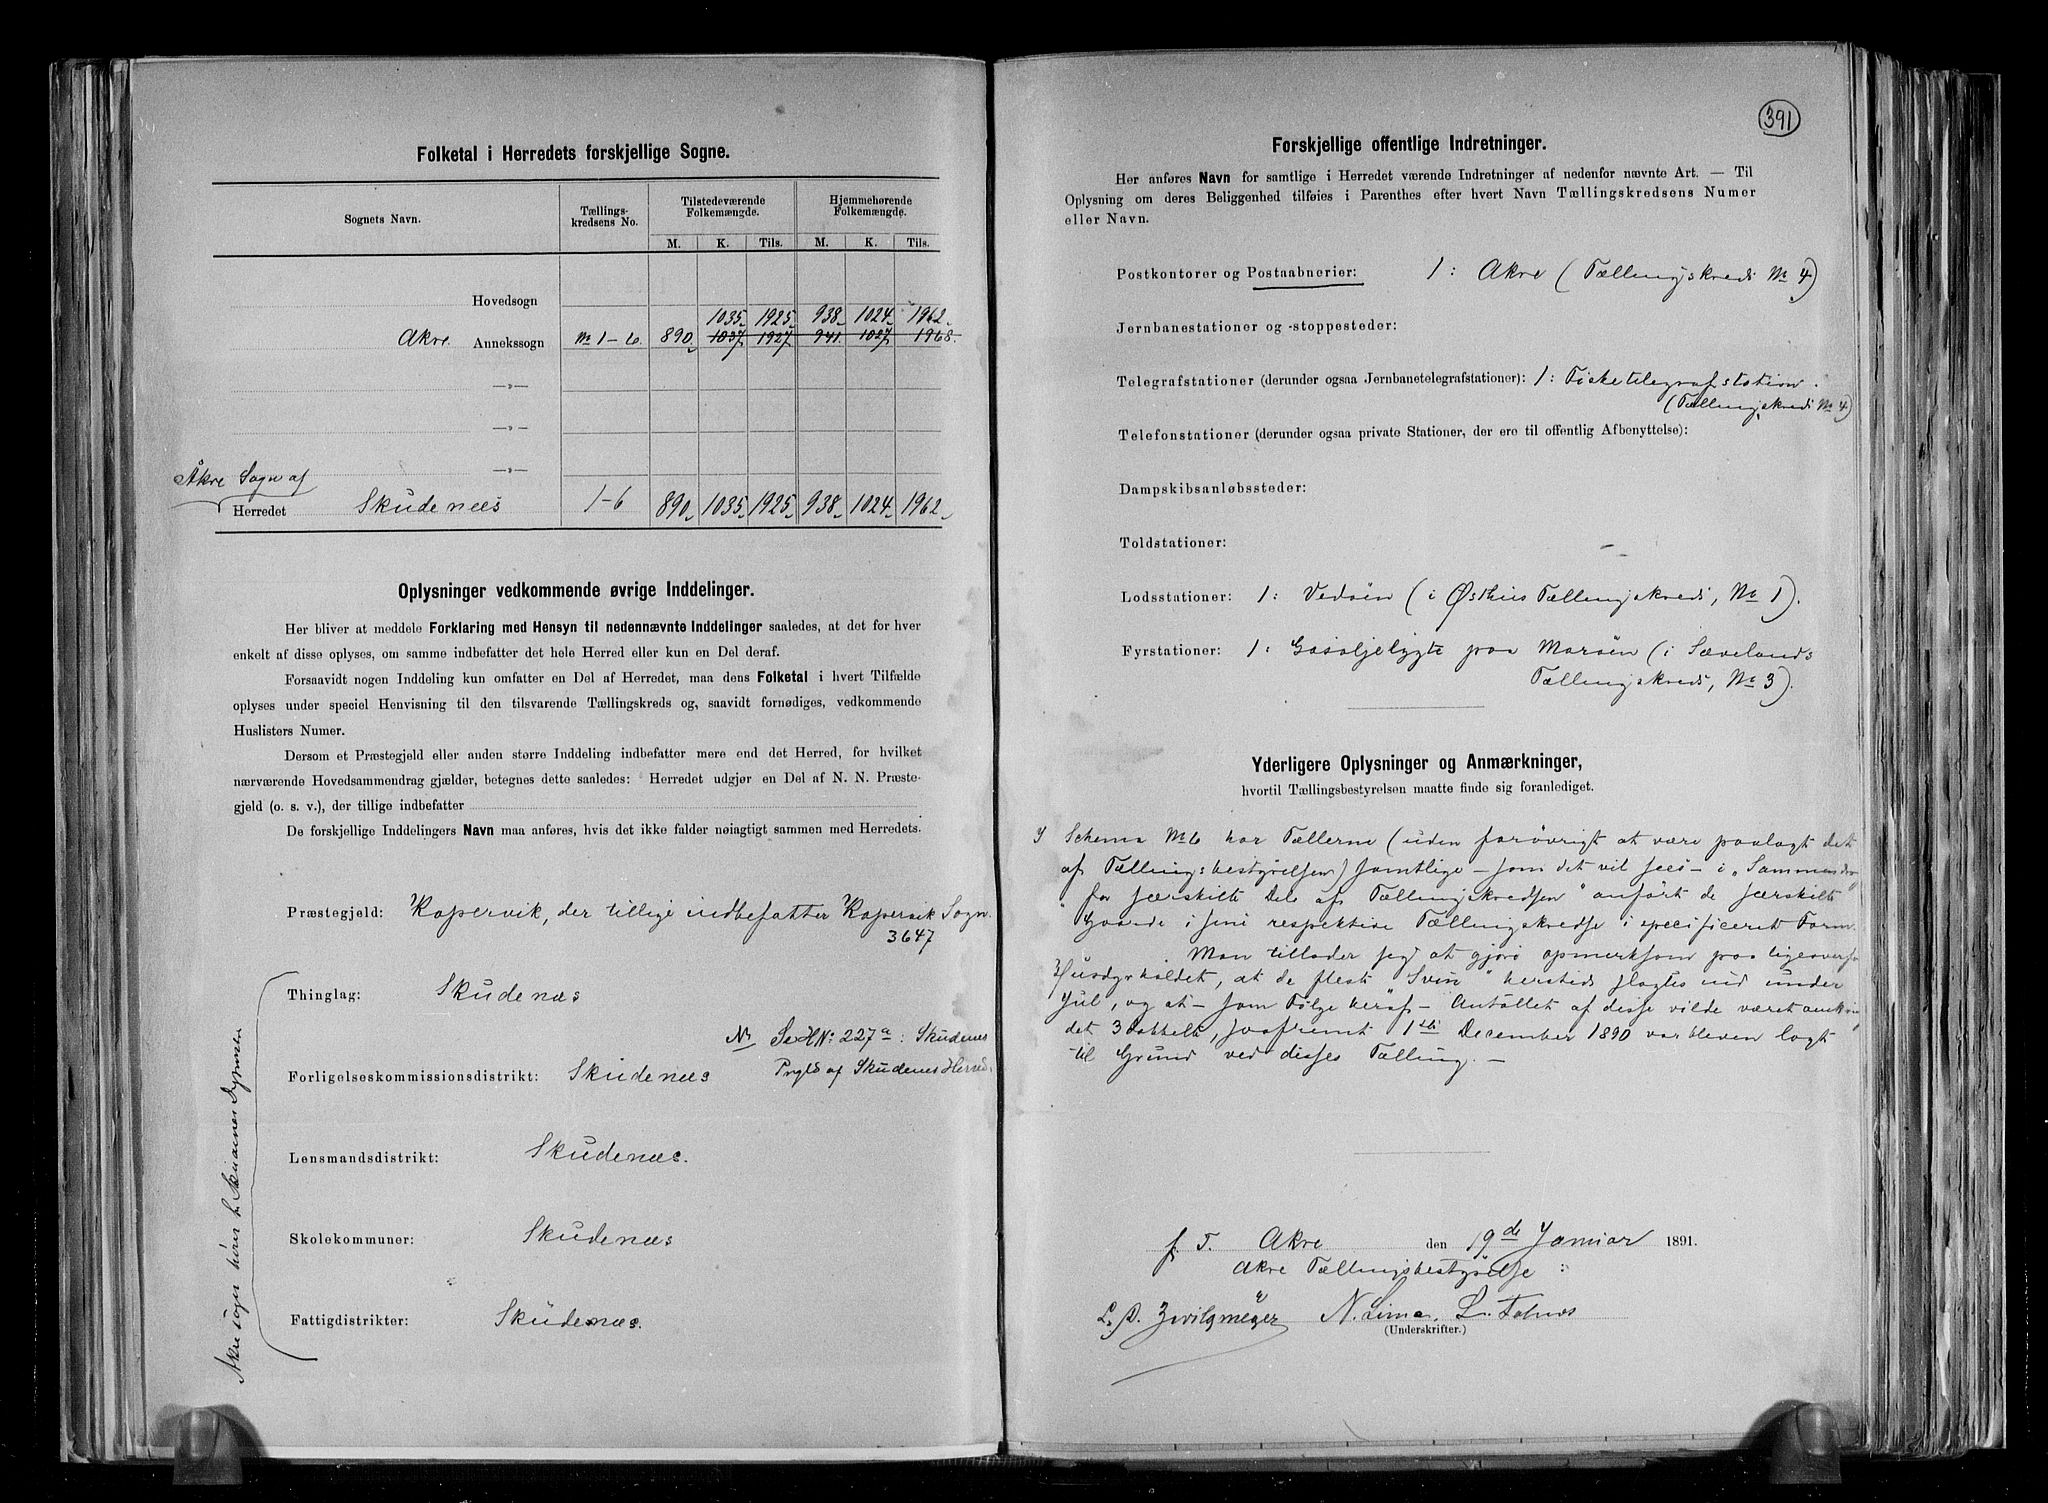 Folketal i Herredets forskjellige Sogne.
Sognets Navn.
Tællings-
kredsens No.
Tilstedeværende
Folkemængde.
Hjemmehørende
Folkemængde.
M. K. Tils. M. K. Tils.
Hovedsogn
1035 1925 938 1024 1962
Akre Annekssogn No 1-6. 890 1037 1927 941 1027 1968.
—„—
—„—
Åkre Sogn af —„—
Herredet Skudenæs 1-6 890 1035 1925 938 1024 1962
Oplysninger vedkommende øvrige Inddelinger.
Her bliver at meddele Forklaring med Hensyn til nedennævnte Inddelinger saaledes, at det for hver
enkelt af disse oplyses, om samme indbefatter det hele Herred eller kun en Del deraf.
Forsaavidt nogen Inddeling kun omfatter en Del af Herredet, maa dens Folketal i hvert Tilfælde
oplyses under speciel Henvisning til den tilsvarende Tællingskreds og, saavidt fornødiges, vedkommende
Huslisters Numer.
Dersom et Præstegjeld eller anden større Inddeling indbefatter mere end det Herred, for hvilket
nærværende Hovedsammendrag gjælder, betegnes dette saaledes: Herredet udgjør en Del af N. N. Præste-
gjeld (o. s. v.), der tillige indbefatter
De forskjellige Inddelingers Navn maa anføres, hvis det ikke falder nøiagtigt sammen med Herredets.
Præstegjeld: Kopervik, der tillige indbefatter Kopervik Sogn.
3647
Thinglag: Skudenæs
227a: Skudenes
Forligelseskommissionsdistrikt: Skudenæs Prgld af Skudenes Herred.
Lensmandsdistrikt: Skudenæs.
Skolekommuner: Skudenæs
Fattigdistrikter: Skudenæs.
391
Forskjellige offentlige Indretninger.
Her anføres Navn for samtlige i Herredet værende Indretninger af nedenfor nævnte Art. — Til
Oplysning om deres Beliggenhed tilføies i Parenthes efter hvert Navn Tællingskredsens Numer
eller Navn.
Postkontorer og Postaabnerier: 1: Akre (Tællingskreds No 4)
Jernbanestationer og -stoppesteder:
Telegrafstationer (derunder ogsaa Jernbanetelegrafstationer): 1: Fisketelegrafstation.
(Tællingskreds No 4)
Telefonstationer (derunder ogsaa private Stationer, der ere til offentlig Afbenyttelse):
Dampskibsanløbssteder:
Toldstationer:
Lodsstationer: 1: Vedøen (i Østhus Tællingskreds, No 1).
Fyrstationer: 1: Gasoljelygte paa Marøen (i Sævelands
Tællingskreds, No 3).
Yderligere Oplysninger og Anmærkninger,
hvortil Tællingsbestyrelsen maatte finde sig foranlediget.
I Schema No 6 har Tællerne (uden forøvrigt at være paalagt det
af Tællingsbestyrelsen) samtlige – som det vil sees – i "Sammendrag
for særskilte Dele af Tællingskredsen" anført de særskilte
Gaarde i sine respektive Tællingskredse i specificeret Form.
Man tillader sig at gjøre opmerksom paa ligeoverfor
Husdyrholdet, at de fleste "Svin" hersteds slagtes ind under
Jul, og at – som Følge heraf – Antallet af disse vilde været omkring
det 3 dobbelte, saafremt 1ste December 1890 var bleven lagt
til Grund ved disses Tælling. –
p. T. Akre den 19de Januar 1891.
Akre Tællingsbestyrelse:
L. D. Zwilgmeyer N. Lima. L.
(Underskrifter.)